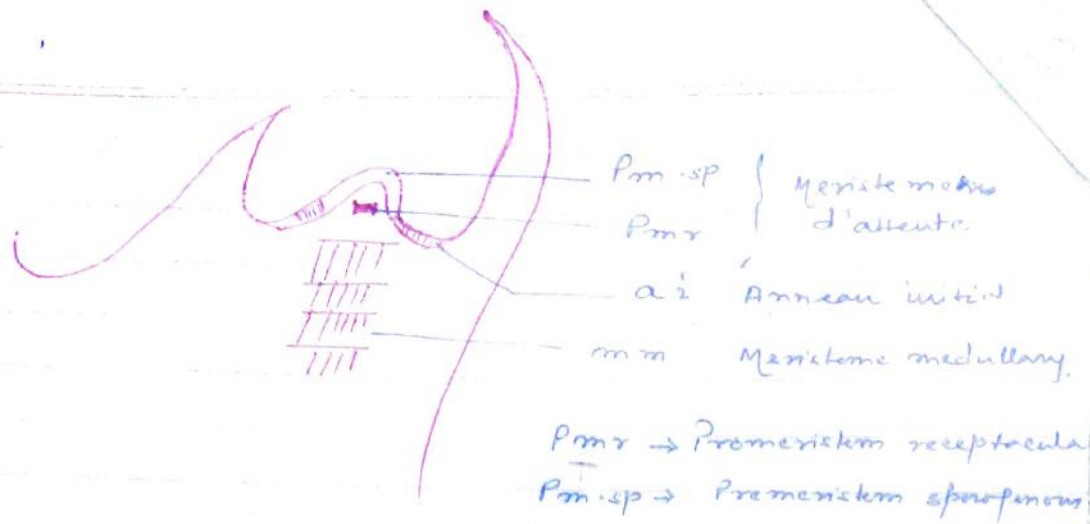 Pm.sp } Meristeme
Pmr d'attente
ai Anneau initial
mm Meristeme medullary.
Pmr → Promeristem receptacula
Pm.sp → Premeristem sporogenous